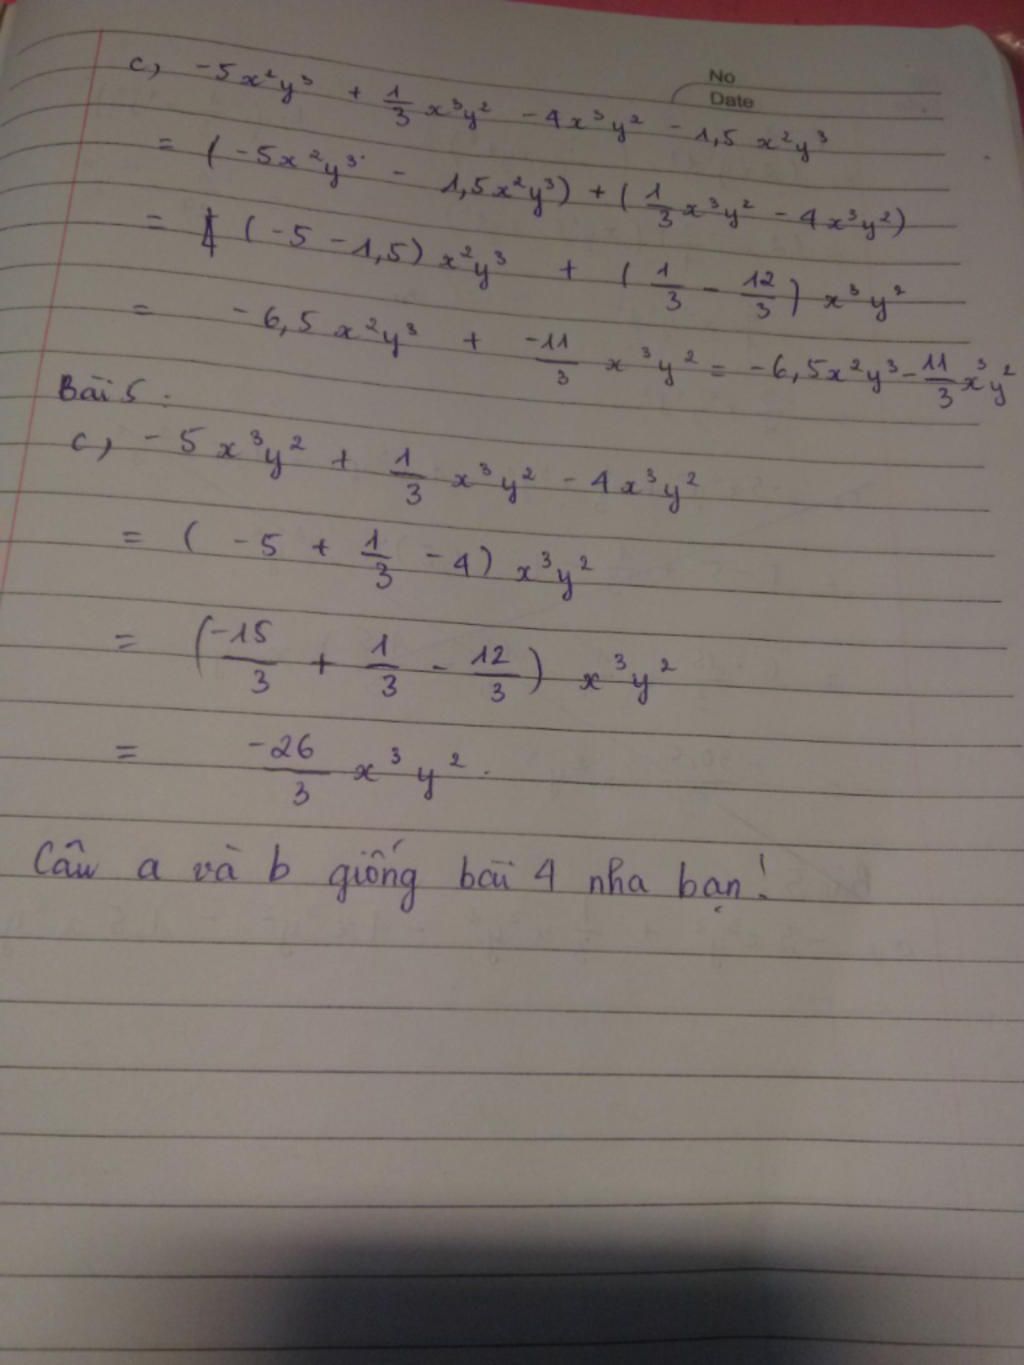 No
Date
c, -5x²y³ + 1/3 x³y² - 4x³y² - 1,5x²y³
= (-5x²y³ - 1,5x²y³) + (1/3 x³y² - 4x³y²)
= (-5 - 1,5) x²y³ + (1/3 - 12/3) x³y²
= -6,5x²y³ + -11/3 x³y² = -6,5x²y³ - 11/3 x³y²
Bài 5 :
c, -5x³y² + 1/3 x³y² - 4x³y²
= (-5 + 1/3 - 4) x³y²
= (-15/3 + 1/3 - 12/3) x³y²
= -26/3 x³y².
Câu a và b giống bài 4 nha bạn!